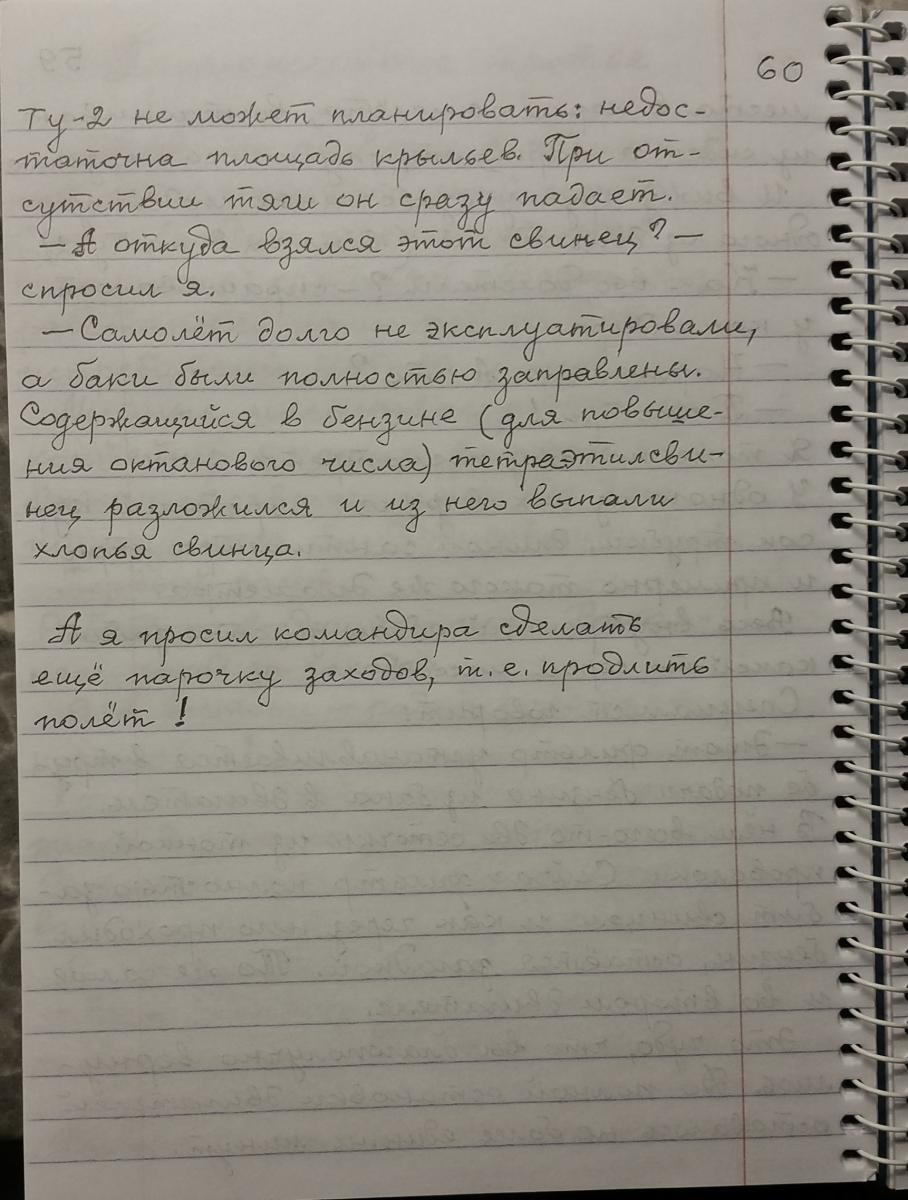 60
Ту-2 не может планировать: недос-
таточна площадь крыльев. При от-
сутствии тяги он сразу падает.
— А откуда взялся этот свинец? —
спросил я.
— Самолёт долго не эксплуатировали,
а баки были полностью заправлены.
Содержащийся в бензине (для повыше-
ния октанового числа) тетраэтилсви-
нец разложился и из него выпали
хлопья свинца.
А я просил командира сделать
ещё парочку заходов, т.е. продлить
полёт!